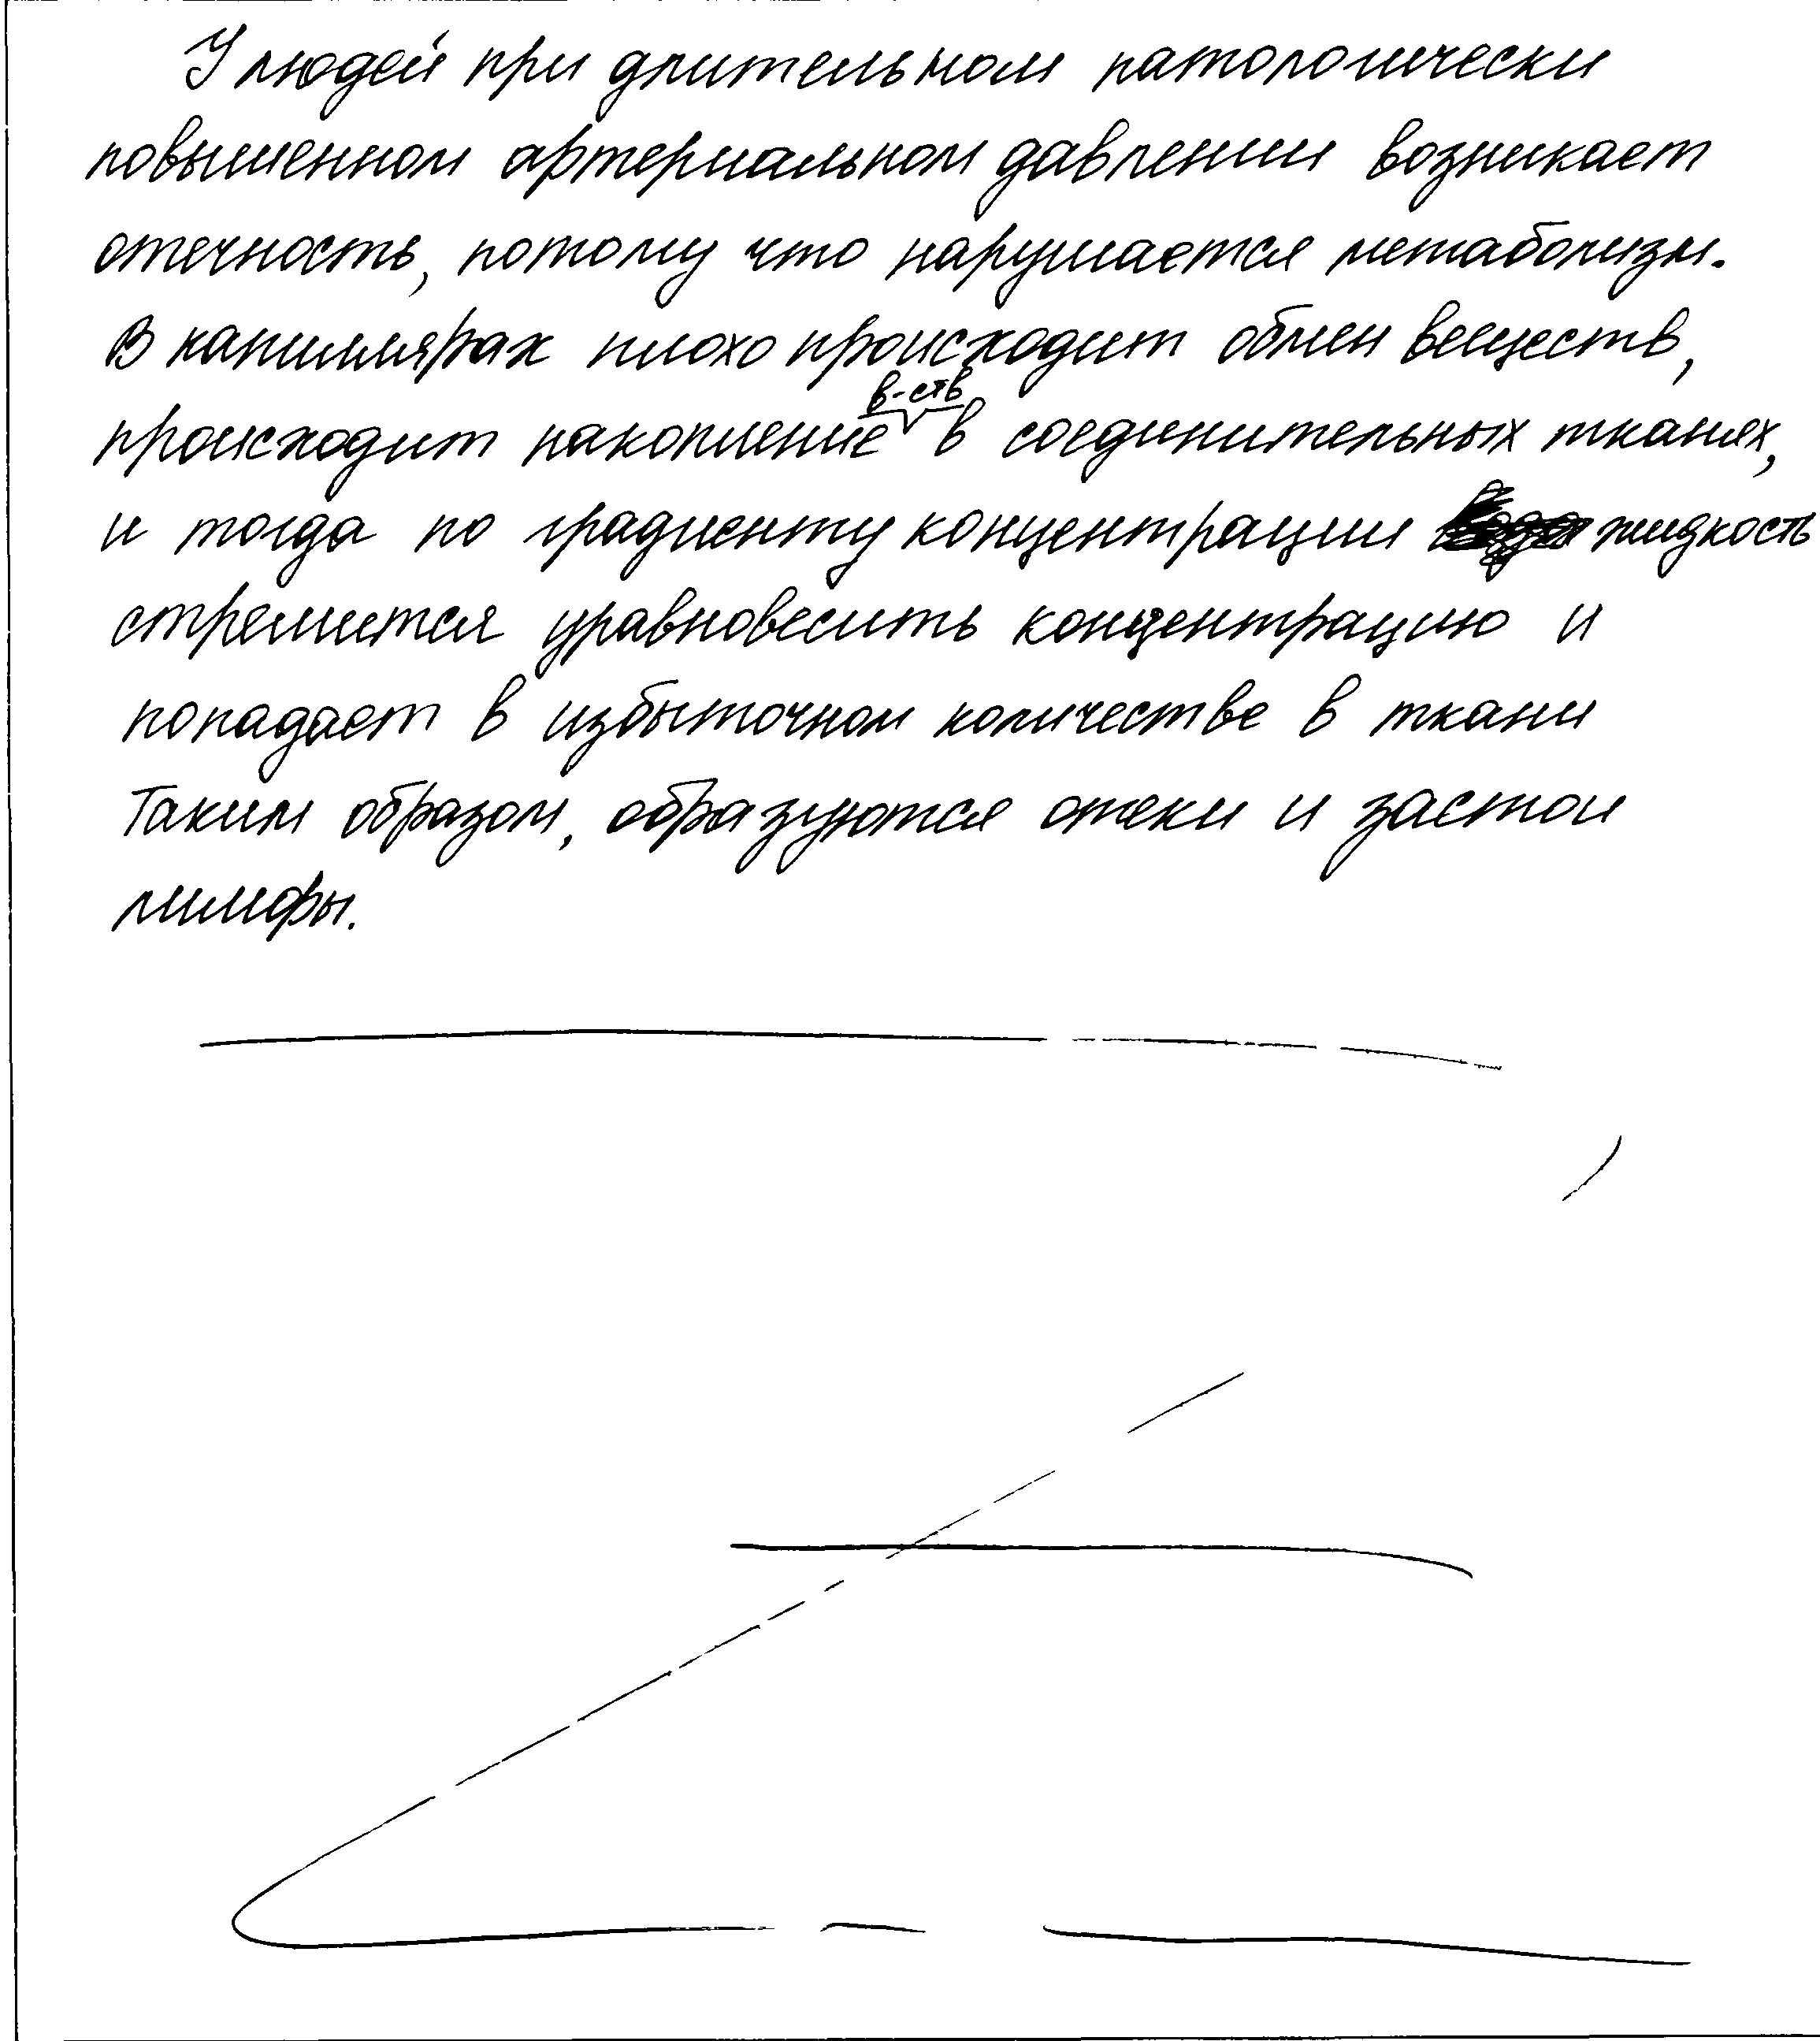 У людей при длительном патологически
повышенном артериальном давлении возникает
отечность, потому что нарушается метаболизм.
В капиллярах плохо происходит обмен веществ,
происходит накопление в-ств в соединительных тканях,
и тогда по градиенту концентрации жидкость
стремится уравновесить концентрацию и
попадает в избыточном количестве в ткани
Таким образом, образуются отеки и застои
лимфы.